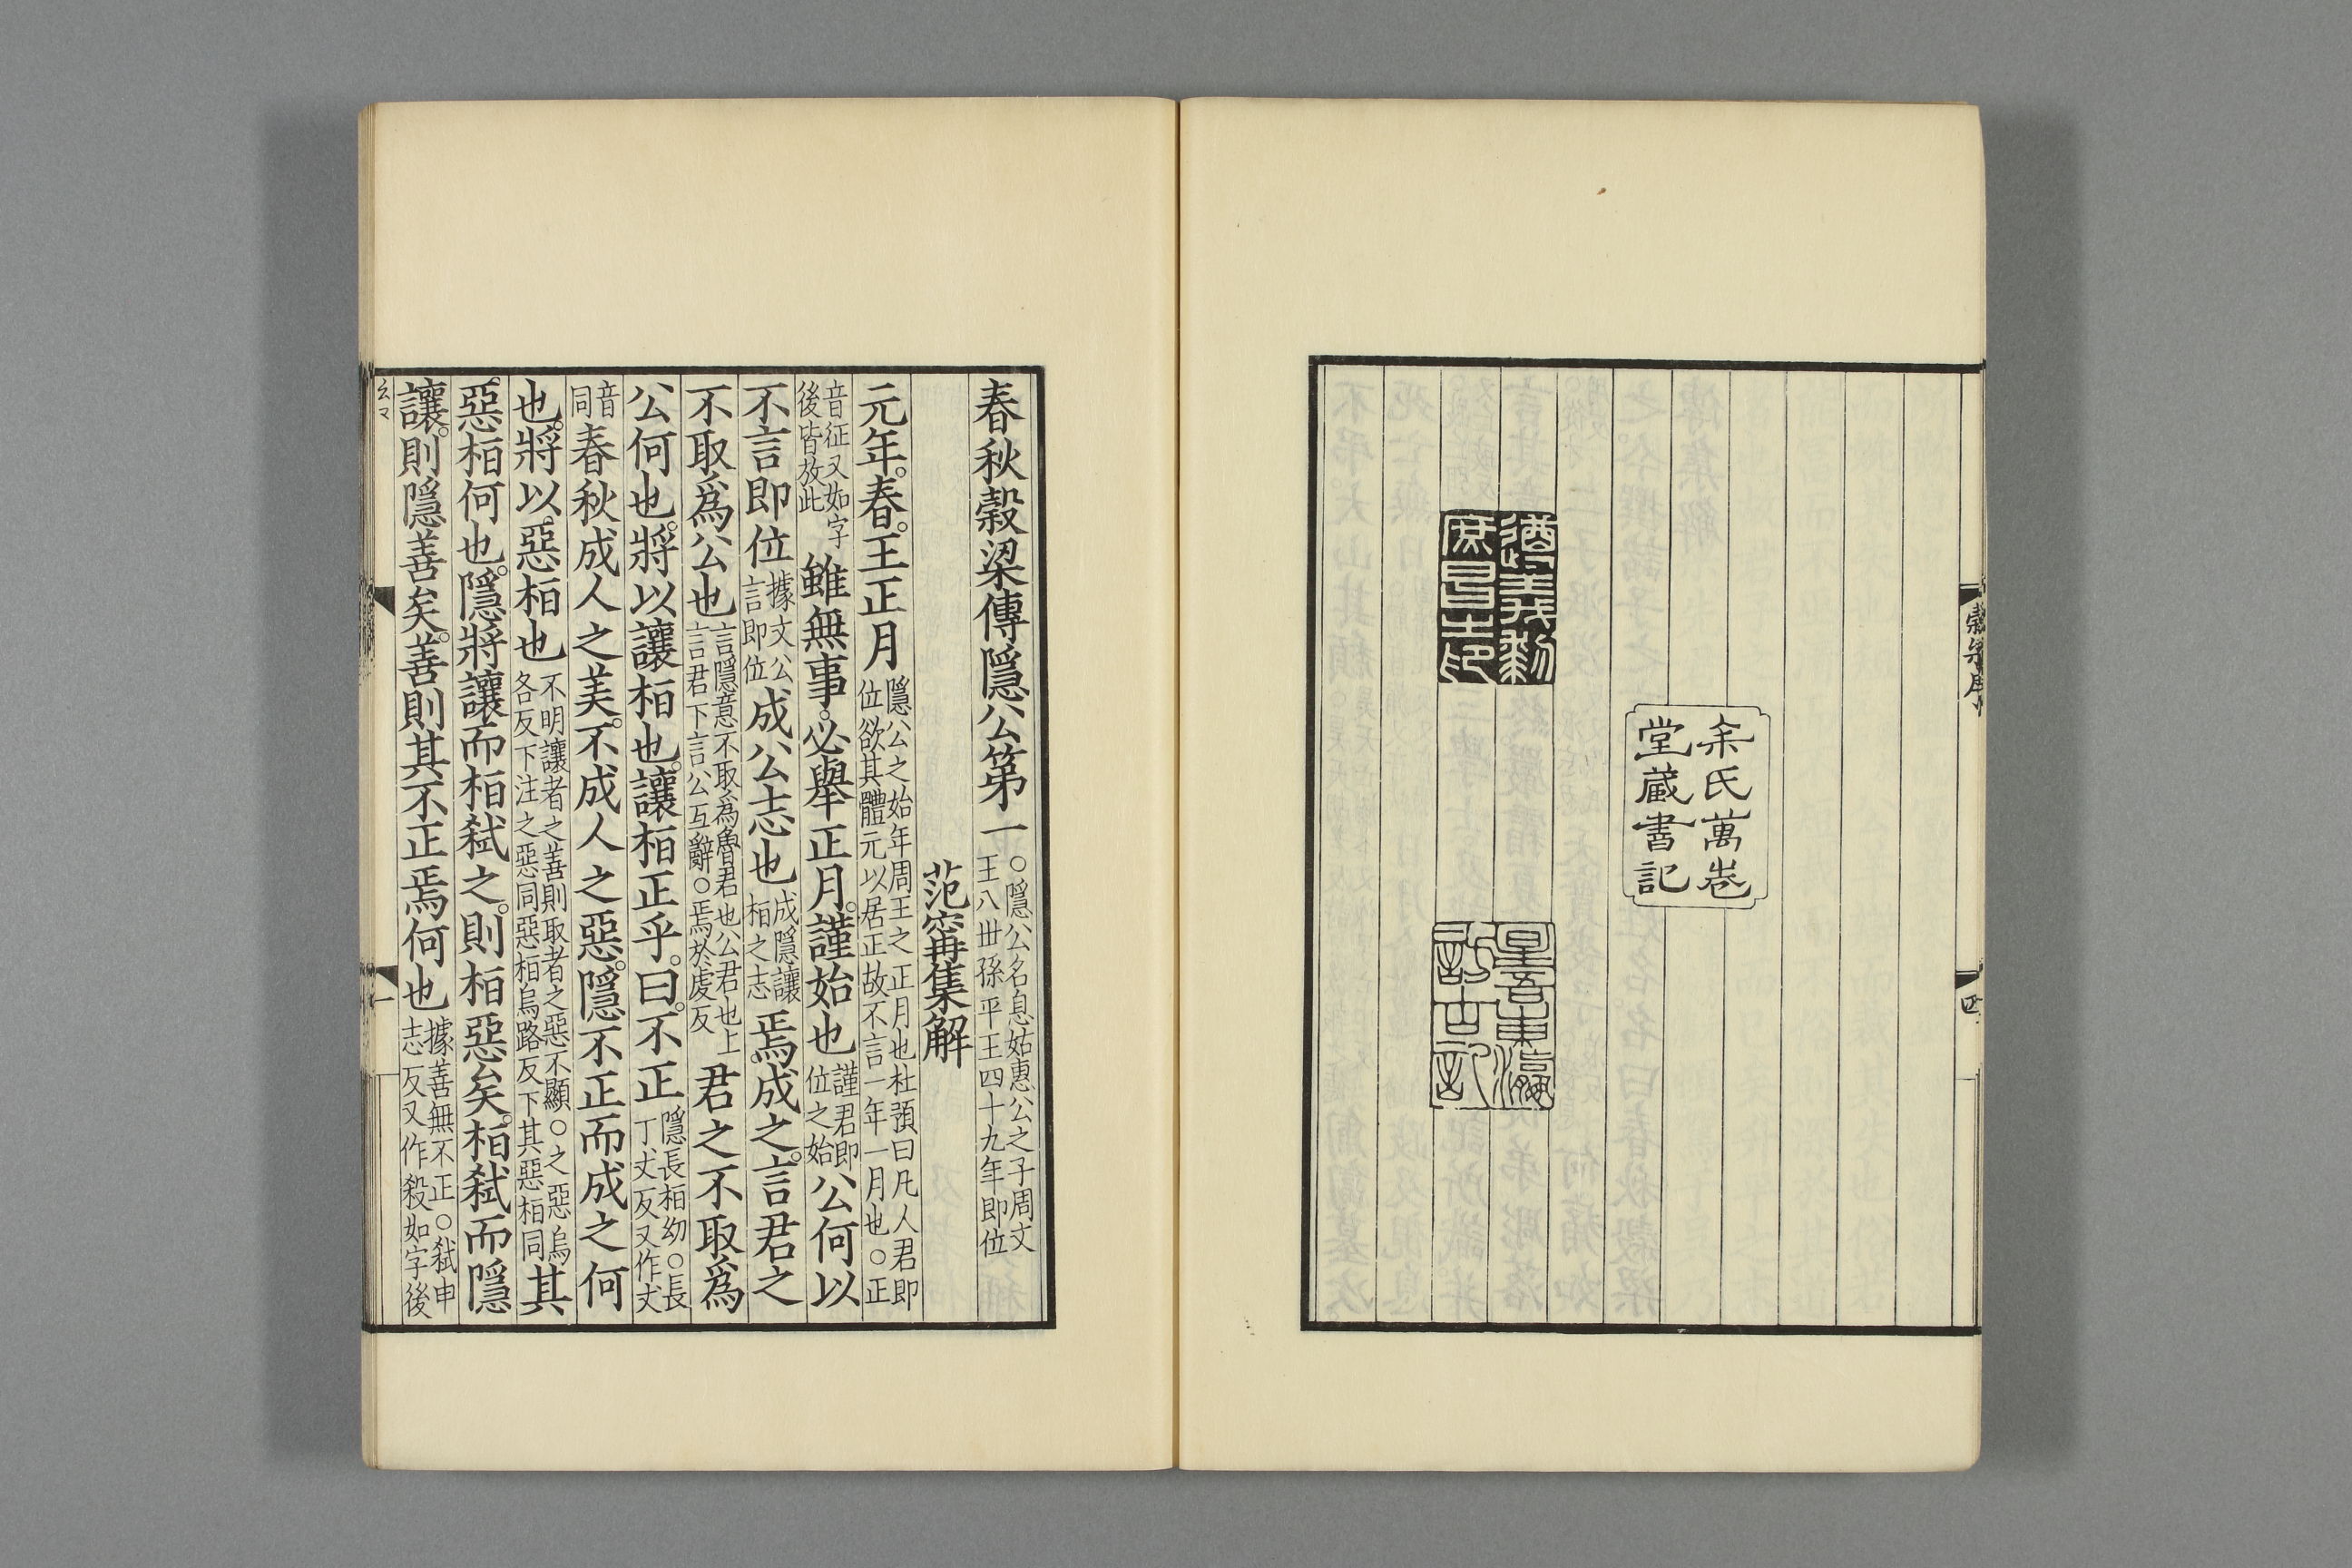 余氏萬卷
堂藏書記
星吾東瀛
訪古記
穀梁序
四
春秋穀梁傳隱公第一
○隱公名息姑惠公之子周文
王八世孫平王四十九年即位
范甯集解
元年。春。王正月
隱公之始年周王之正月也杜預曰凡人君即
位欲其體元以居正故不言一年一月也○正
音征又如字
後皆放此
雖無事。必舉正月。謹始也
謹君即
位之始
公何以
不言即位
據文公
言即位
成公志也
成隱讓
桓之志
焉成之。言君之
不取爲公也
言隱意不取爲魯君也公君也上
言君下言公互辭○焉於虔反
君之不取爲
公何也。將以讓桓也。讓桓正乎。曰。不正
隱長桓幼○長
丁丈反又作丈
音
同
春秋成人之美。不成人之惡。隱不正而成之何
也。將以惡桓也
不明讓者之善則取者之惡不顯○之惡烏
各反下注之惡同惡桓烏路反下其惡桓同
其
惡桓何也。隱將讓而桓弑之。則桓惡矣。桓弑而隱
讓。則隱善矣。善則其不正焉何也
據善無不正○弑申
志反又作殺如字後
一